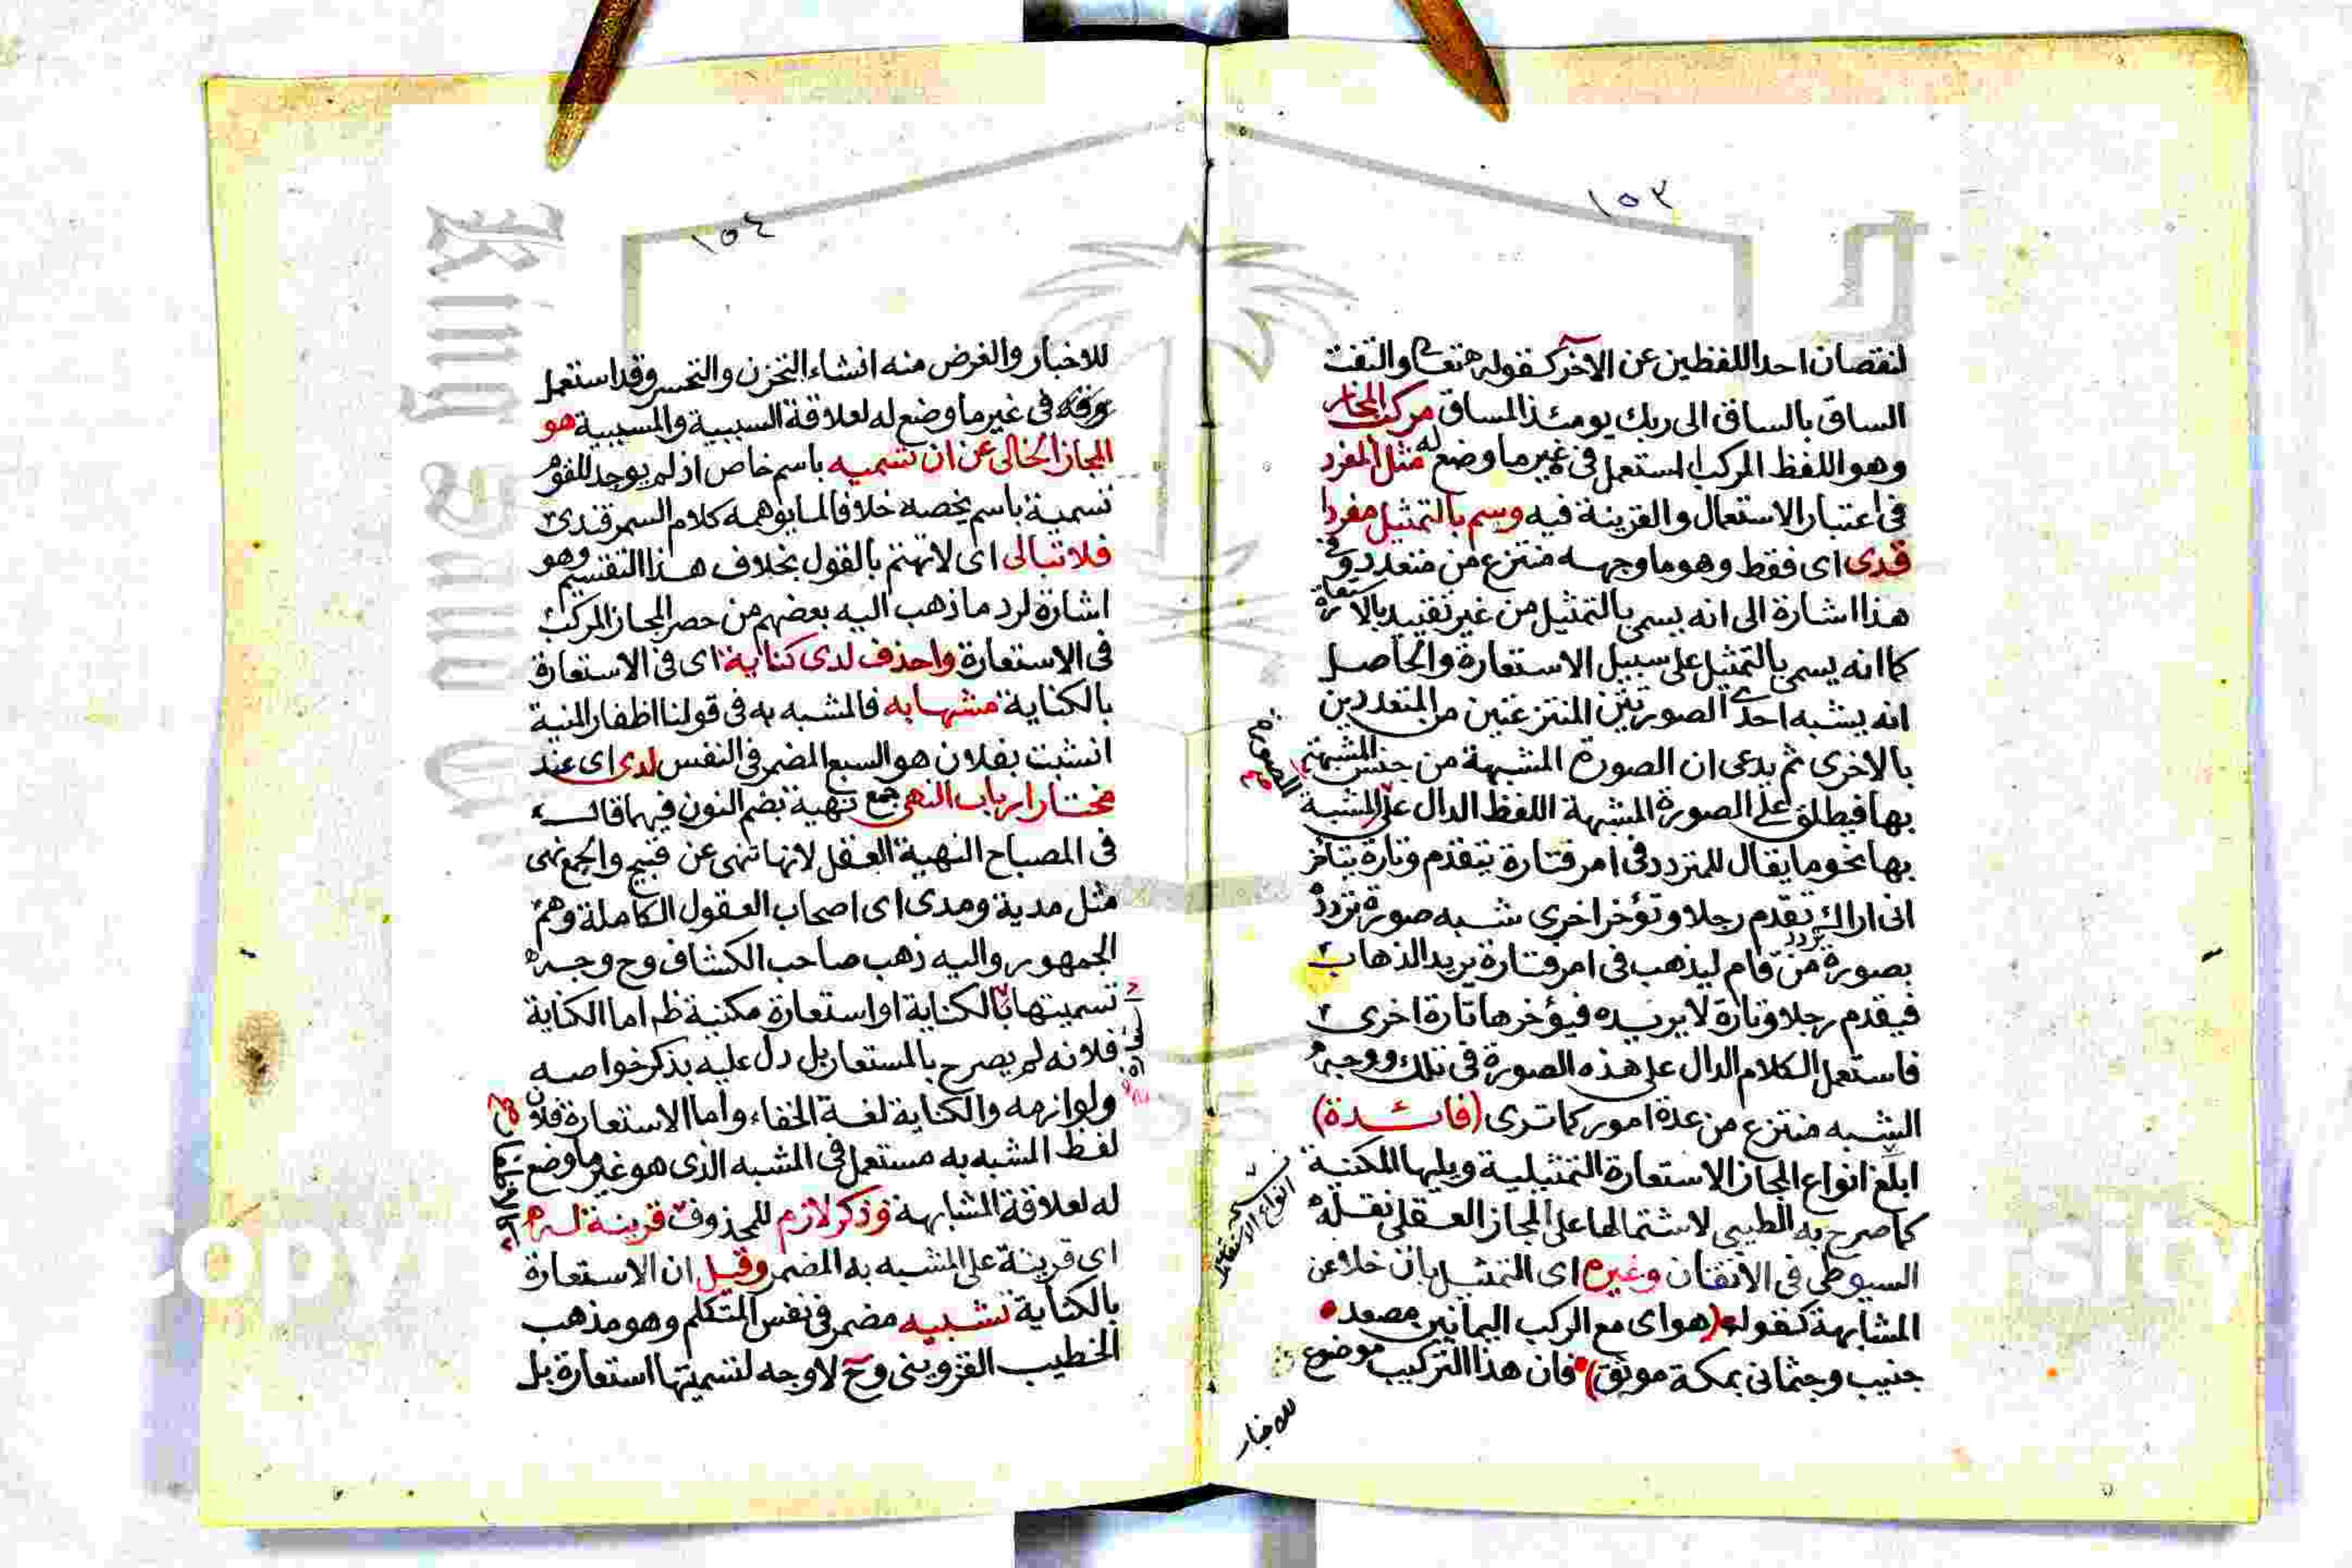 ١٥٣
لنقصان احد اللفظين عن الآخر كقوله تعالى والتفت
الساق بالساق الى ربك يومئذ المساق مركب المجاز
وهو اللفظ المركب المستعمل في غير ما وضع له مثل المفرد
في اعتبار الاستعمال والقرينة فيه وسم بالتمثيل مفردا
قدى اى فقط وهو ما وجهه منتزع من متعدد وفي
هذا اشارة الى انه يسمى بالتمثيل من غير تقييد بالاستعارة
كما انه يسمى بالتمثيل على سبيل الاستعارة والحاصل
انه يشبه احدى الصورتين المنتزعتين من المتعددين
بالاخرى ثم يدعى ان الصورة المشبهة من جنس المشبهة
بها فيطلق على الصورة المشبهة اللفظ الدال على المشبة
بها نحو ما يقال للمتردد في امر فتارة يتقدم وتارة يتأخر
انى اراك تقدم رجلا وتؤخر اخرى شبه صورة تردده
بصورة تردد من قام ليذهب في امر فتارة يريد الذهاب
فيقدم رجلا وتارة لا يريده فيؤخرها تارة اخرى
فاستعمل الكلام الدال على هذه الصورة في تلك ووجه
الشبه منتزع من عدة امور كما ترى (فائدة)
ابلغ انواع المجاز الاستعارة التمثيلية ويليها المكنية
كما صرح به الطيبي لاشتمالها على المجاز العقلي نقله
السيوطي في الاتقان وغيره اى التمثيل بان خلا عن
المشابهة كقوله (هواى مع الركب اليمانين مصعد
جنيب وجثمانى بمكة موثق) فان هذا التركيب موضوع
للاخبار
الصورة صح
نسخة انواع الاستعارة
١٥٤
للاخبار والغرض منه انشاء التحزن والتحسر وقد استعمل
في غير ما وضع له لعلاقة السببية والمسببية هو
المجاز الخالى عن ان تسميه باسم خاص اذ لم يوجد للقوم
تسمية باسم يخصه خلافا لما يوهمه كلام السمرقندى
فلا تبالى اى لا تهتم بالقول بخلاف هذا التقسيم وهو
اشارة لرد ما ذهب اليه بعضهم من حصر المجاز المركب
في الاستعارة واحذف لدى كناية اى في الاستعارة
بالكناية مشبها به فالمشبه به في قولنا اظفار المنية
انشبت بفلان هو السبع المضمر في النفس لدى اى عند
مختار ارباب النهى جمع نهية بضم النون فيهما قال
في المصباح النهية العقل لانها تنهى عن قبيح والجمع نهى
مثل مدية ومدى اى اصحاب العقول الكاملة وهم
الجمهور واليه ذهب صاحب الكشاف وح وجه
تسميتها بالكناية او استعارة مكنية ظ اما الكناية
فلانه لم يصرح بالمستعار بل دل عليه بذكر خواصه
ولوازمه والكناية لغة الخفاء واما الاستعارة فلان
لفظ المشبه به مستعمل في المشبه الذى هو غير ما وضع
له لعلاقة المشابهة وذكر لازم للمحذوف قرينة له
اى قرينة على المشبه به المضمر وقيل ان الاستعارة
بالكناية تشبيه مضمر في نفس المتكلم وهو مذهب
الخطيب القزوينى وح لا وجه لتسميتها استعارة بل
King